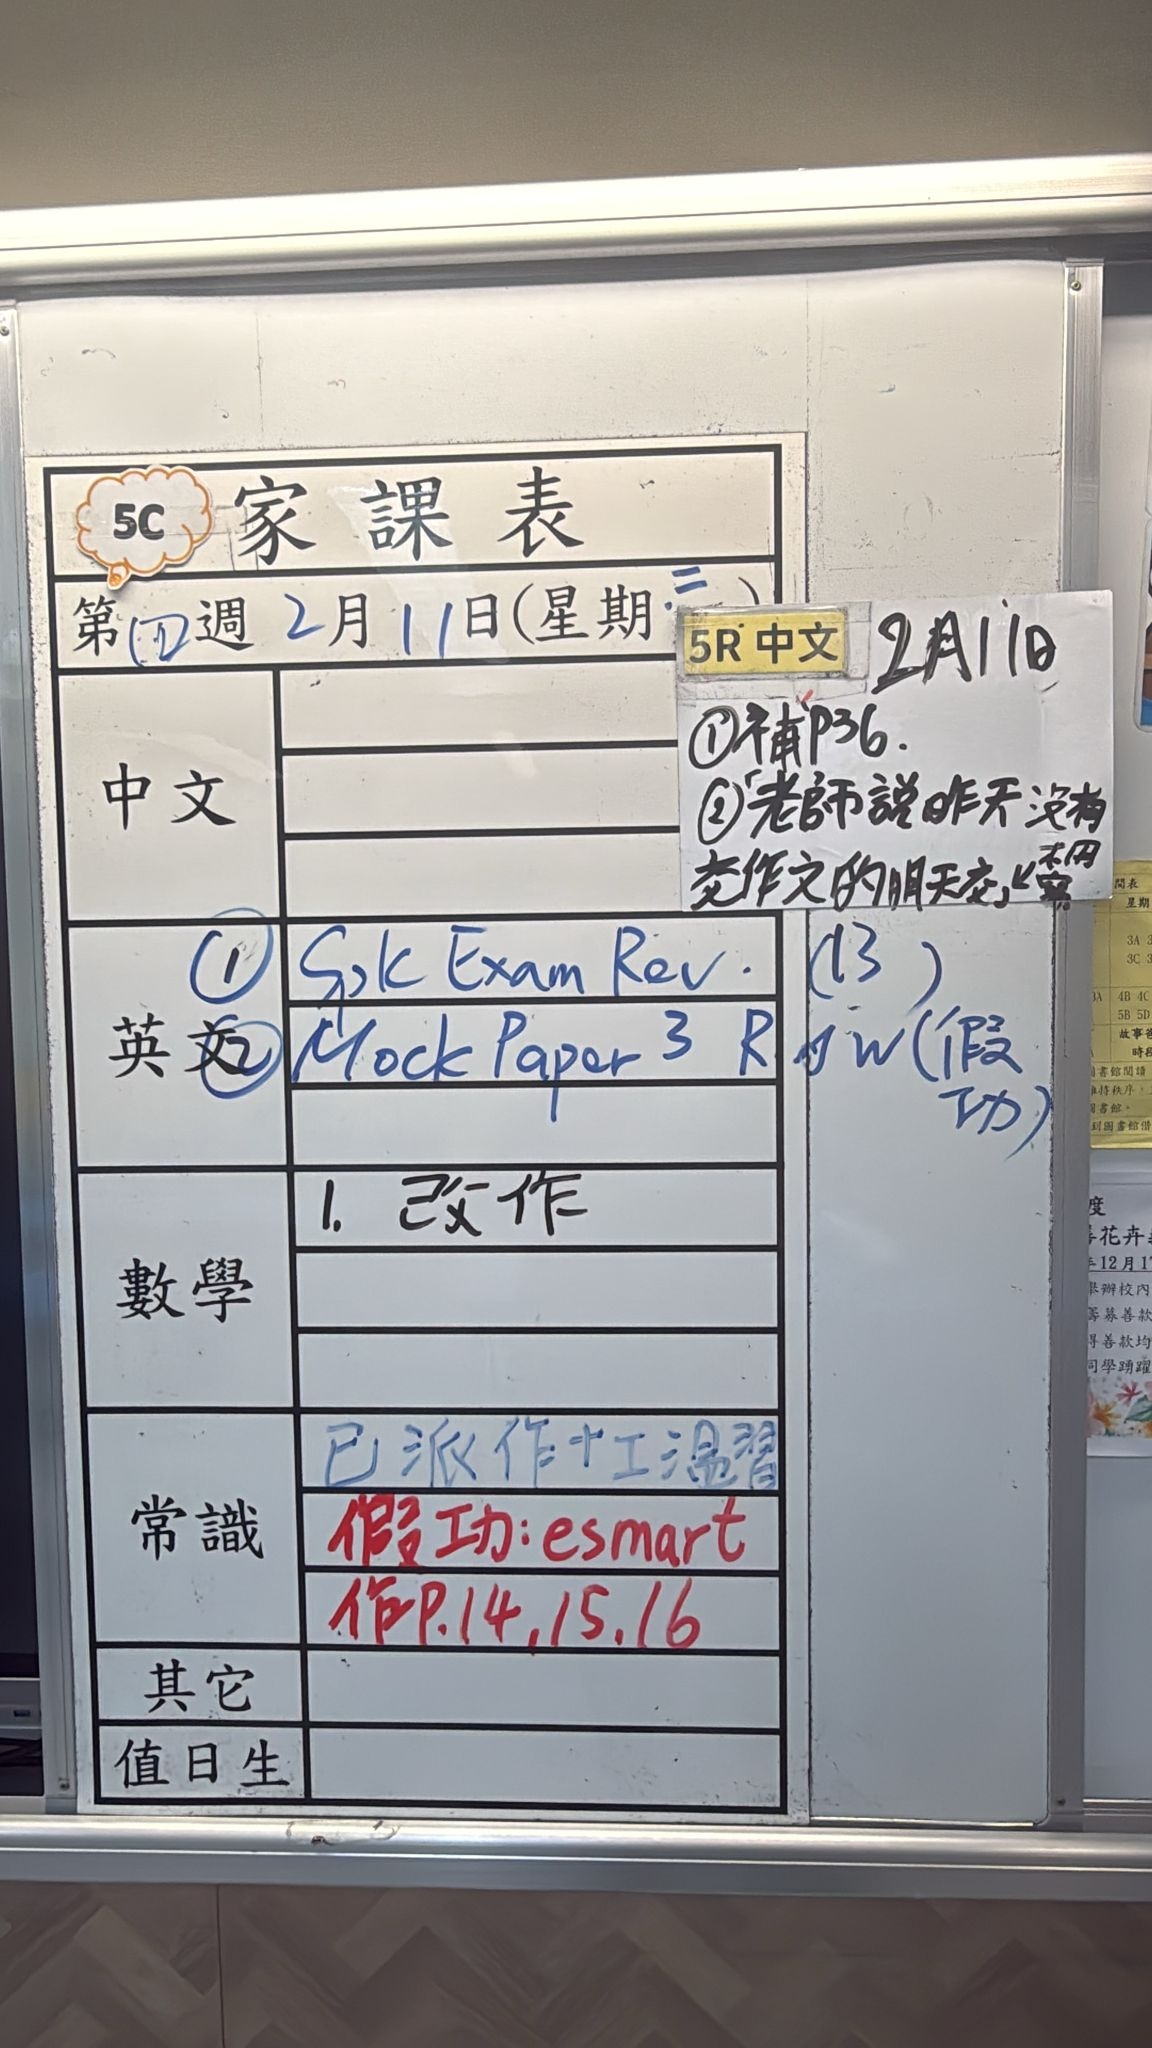 5C 家課表
第四週 2月11日(星期三)
5R 中文 2月11日
①補P36.
②「老師説昨天没有
交作文的明天交」↙不用寫
中文
英文
① Spk Exam Rev. (13)
② Mock Paper 3 R &W(假功)
數學
1. 改作
常識
已派作十工溫習
假功:esmart
作P.14,15,16
其它
值日生
間表
星期
3A 3
3C 3
4B 4C
5B 5D
時段
圖書館閱讀
維持秩序,
圖書館。
到圖書館借
度
花卉
12月1
舉辦校內
籌募善款
得善款均
同學踴躍